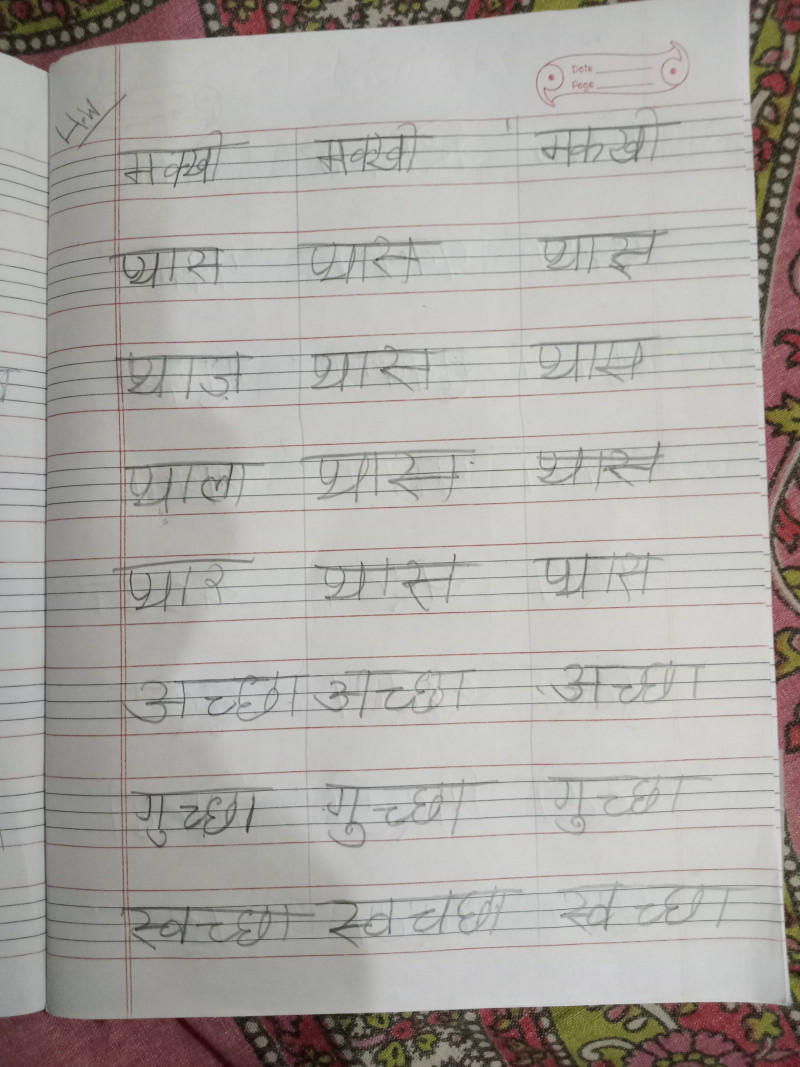 H.W
Date
Page
मक्खी मक्खी मकखी
प्यास प्यास प्यास
थाज़ थास थास
थाला थास थास
प्यार थास प्यास
अच्छा अच्छा अच्छा
गुच्छा गुच्छा गुच्छा
स्वच्छा स्वच्छा स्वच्छा